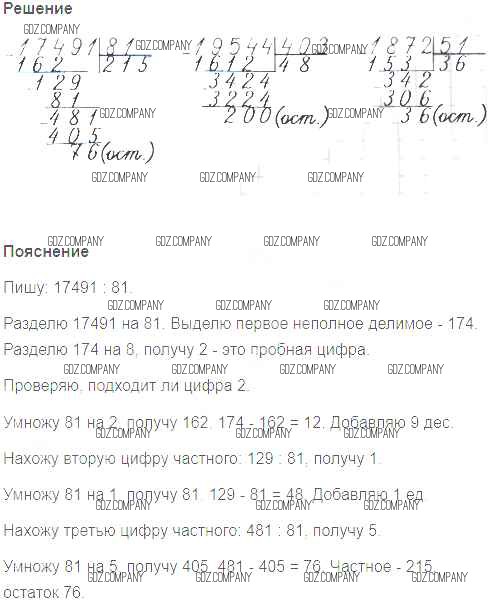 Решение
GDZ.COMPANY
17491 | 81 19544 | 403 1872 | 51
GDZ.COMPANY GDZ.COMPANY
162 215 1612 48 153 36
129 3424 342
81 3224 306
GDZ.COMPANY GDZ.COMPANY GDZ.COMPANY
481 200 (ост.) 36 (ост.)
405
76 (ост.)
GDZ.COMPANY GDZ.COMPANY GDZ.COMPANY
GDZ.COMPANY GDZ.COMPANY GDZ.COMPANY GDZ.COMPANY
Пояснение
Пишу: 17491 : 81.
GDZ.COMPANY GDZ.COMPANY GDZ.COMPANY
Разделю 17491 на 81. Выделю первое неполное делимое - 174.
Разделю 174 на 8, получу 2 - это пробная цифра.
GDZ.COMPANY GDZ.COMPANY GDZ.COMPANY GDZ.COMPANY
Проверяю, подходит ли цифра 2.
GDZ.COMPANY GDZ.COMPANY GDZ.COMPANY
Умножу 81 на 2, получу 162. 174 - 162 = 12. Добавляю 9 дес.
GDZ.COMPANY GDZ.COMPANY GDZ.COMPANY
Нахожу вторую цифру частного: 129 : 81, получу 1.
GDZ.COMPANY GDZ.COMPANY GDZ.COMPANY
Умножу 81 на 1, получу 81. 129 - 81 = 48. Добавляю 1 ед.
GDZ.COMPANY GDZ.COMPANY GDZ.COMPANY
Нахожу третью цифру частного: 481 : 81, получу 5.
Умножу 81 на 5, получу 405. 481 - 405 = 76. Частное - 215,
GDZ.COMPANY GDZ.COMPANY GDZ.COMPANY GDZ.COMPANY
остаток 76.